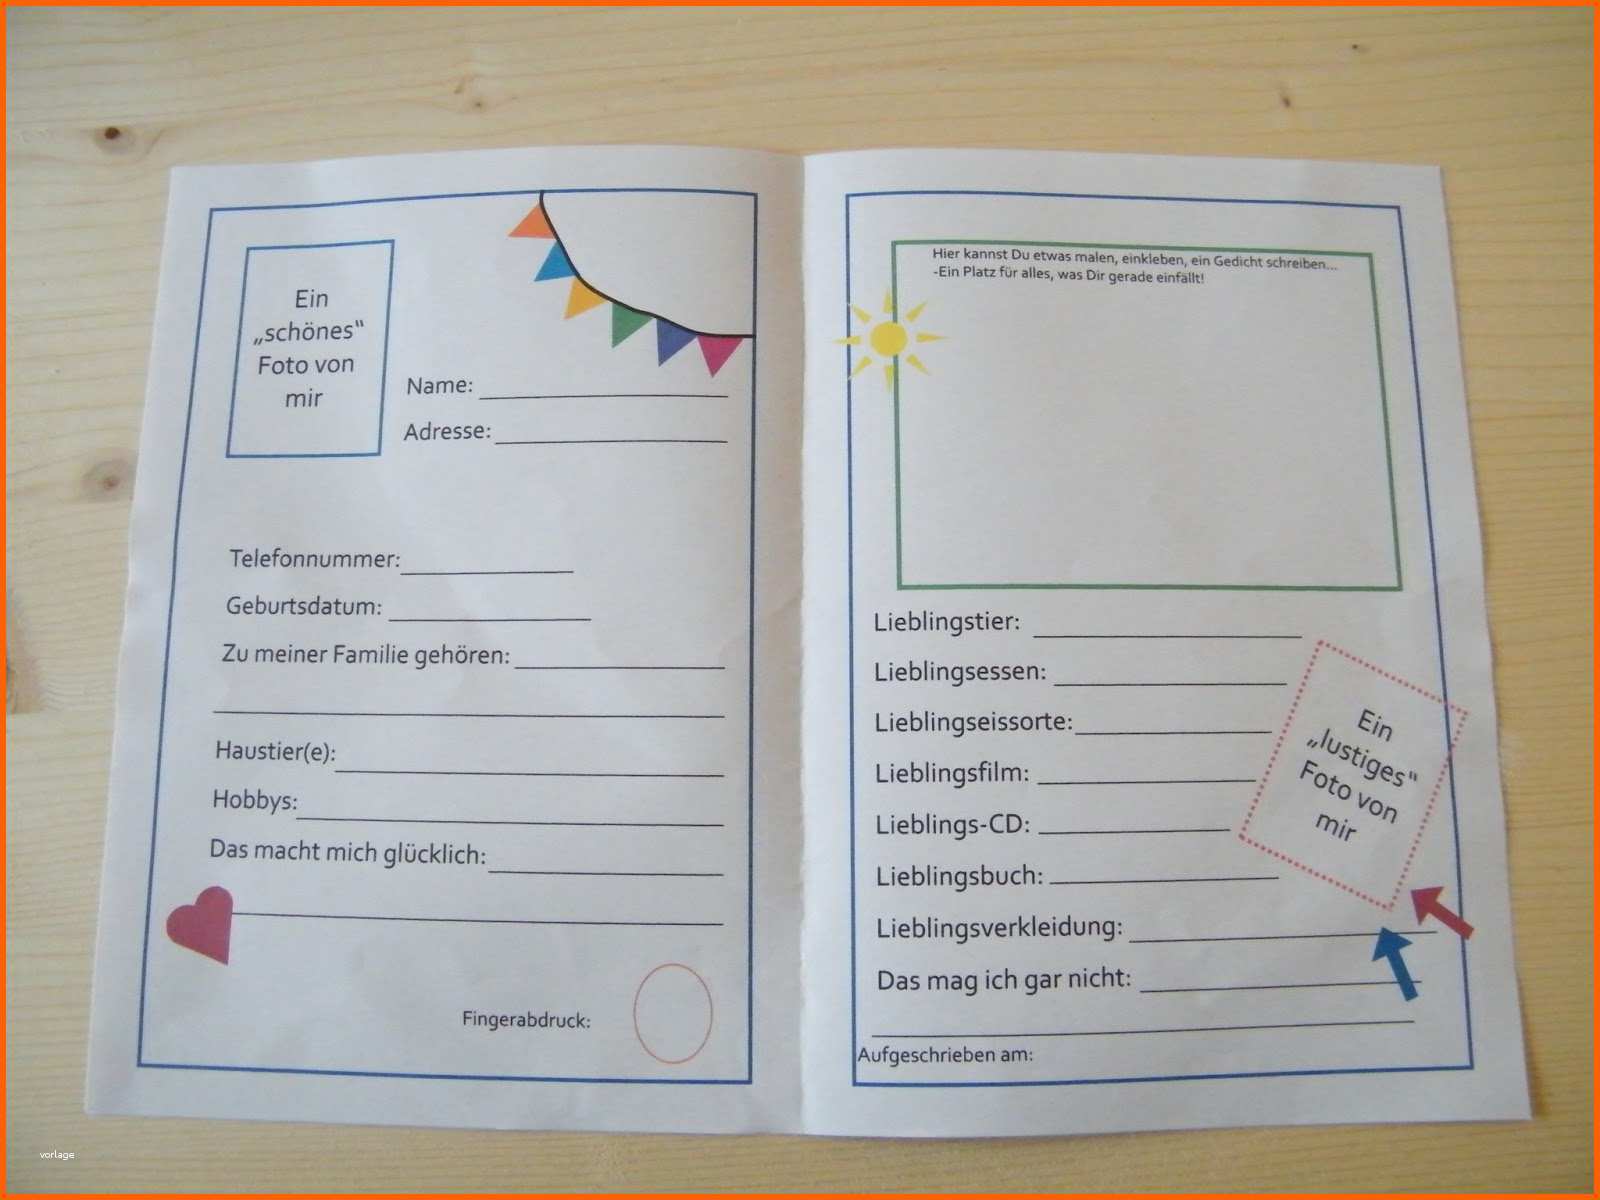 Ein
„schönes“
Foto von
mir
Name:
Adresse:
Telefonnummer:
Geburtsdatum:
Zu meiner Familie gehören:
Haustier(e):
Hobbys:
Das macht mich glücklich:
Fingerabdruck:
Hier kannst Du etwas malen, einkleben, ein Gedicht schreiben...
-Ein Platz für alles, was Dir gerade einfällt!
Lieblingstier:
Lieblingsessen:
Lieblingseissorte:
Lieblingsfilm:
Lieblings-CD:
Lieblingsbuch:
Lieblingsverkleidung:
Das mag ich gar nicht:
Aufgeschrieben am:
Ein
„lustiges“
Foto von
mir
vorlage